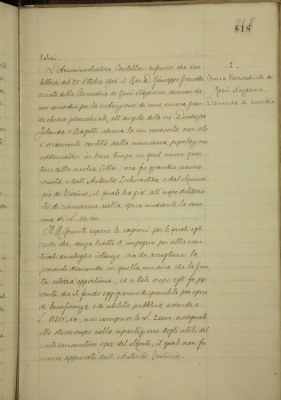 818
L'Amministratore Castellari riferisce che con
lettera del 25 Ottobre 1906 il Rev. D. Giuseppe
curato della Parrocchia di Gesù Nazareno, domanda
un sussidio per la costruzione di una nuova gran-
de chiesa parrocchiale all'angolo delle vie Duchessa
Jolanda e Bagetti, chiesa la cui necessità non solo
è vivamente sentita dalla numerosa popolazione
addensatasi in breve tempo in quel nuovo quar-
tiere della nostra Città, ma fu quandio ricono-
sciuta e dall'Autorità Ecclesiastica e dal Munici-
pio di Torino, il quale ha già all'uopo delibera-
to di concorrere nella spesa mediante la som-
ma di L.
Il Riferente espone le ragioni per le quali egli
crede che, senza tratto d'impegno per altre even-
tuali analoghe istanze, sia da accogliersi la
presente domanda, in quella misura che la Giun-
ta riterrà opportuna, ed a tale scopo egli fa pre-
sente che il fondo oggigiorno disponibile per opere
di beneficenza e di utilità pubblica ascende a
L. non comprese le L. 2000 assegnate
allo stesso scopo nella ripartizione degli utili del
Monte, il quale non fu
ancora approvato dall'Autorità Tutoria.
2
Chiesa Parrocchiale di
Gesù Nazareno.
Domanda di sussidio